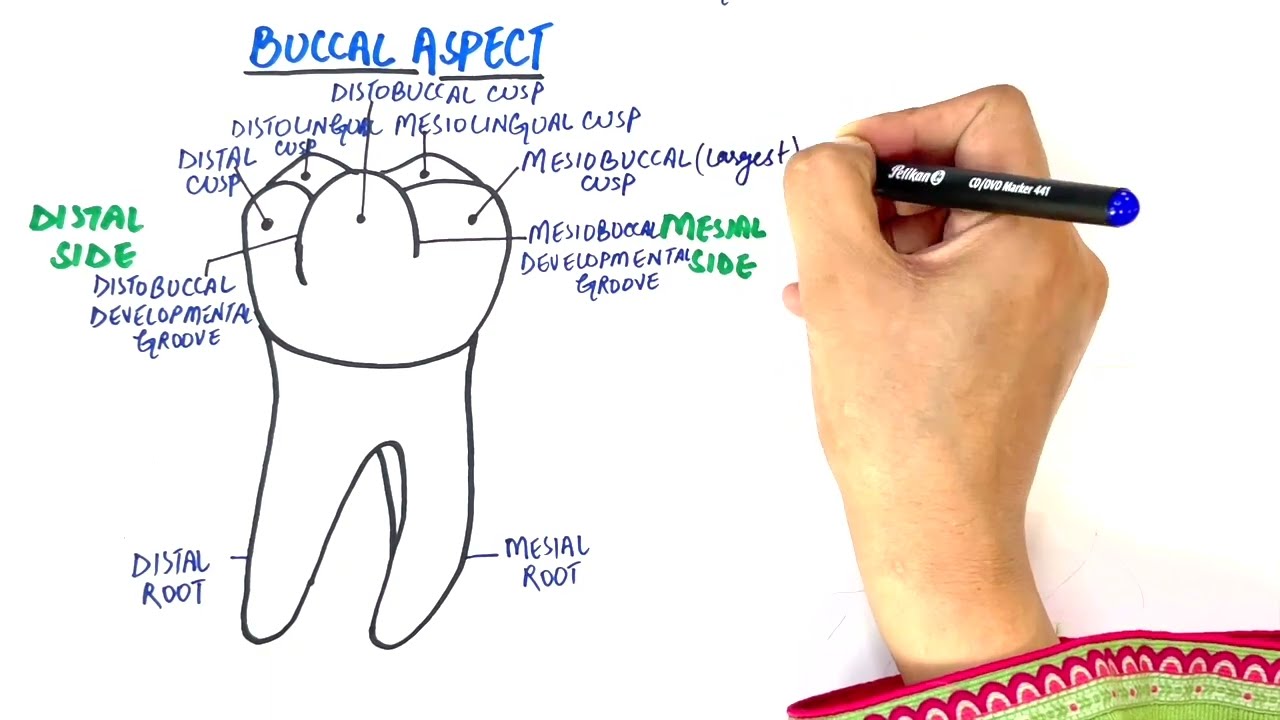 BUCCAL ASPECT
DISTOBUCCAL CUSP
DISTOLINGUAL
CUSP
MESIOLINGUAL CUSP
DISTAL
CUSP
MESIOBUCCAL (largest)
CUSP
DISTAL
SIDE
MESIOBUCCAL
DEVELOPMENTAL
GROOVE
MESIAL
SIDE
DISTOBUCCAL
DEVELOPMENTAL
GROOVE
DISTAL
ROOT
MESIAL
ROOT
Pelikan
CD/DVD Marker 441